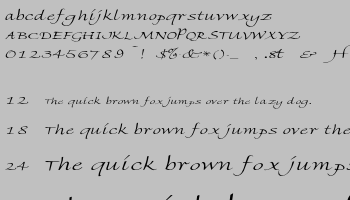 abcdefghijklmnopqrstuvwxyz
ABCDEFGHIJKLMNOPQRSTUVWXYZ
0123456789 ! $% &*()-_ , .st & H
12 The quick brown fox jumps over the lazy dog.
18 The quick brown fox jumps over the
24 The quick brown fox jumps